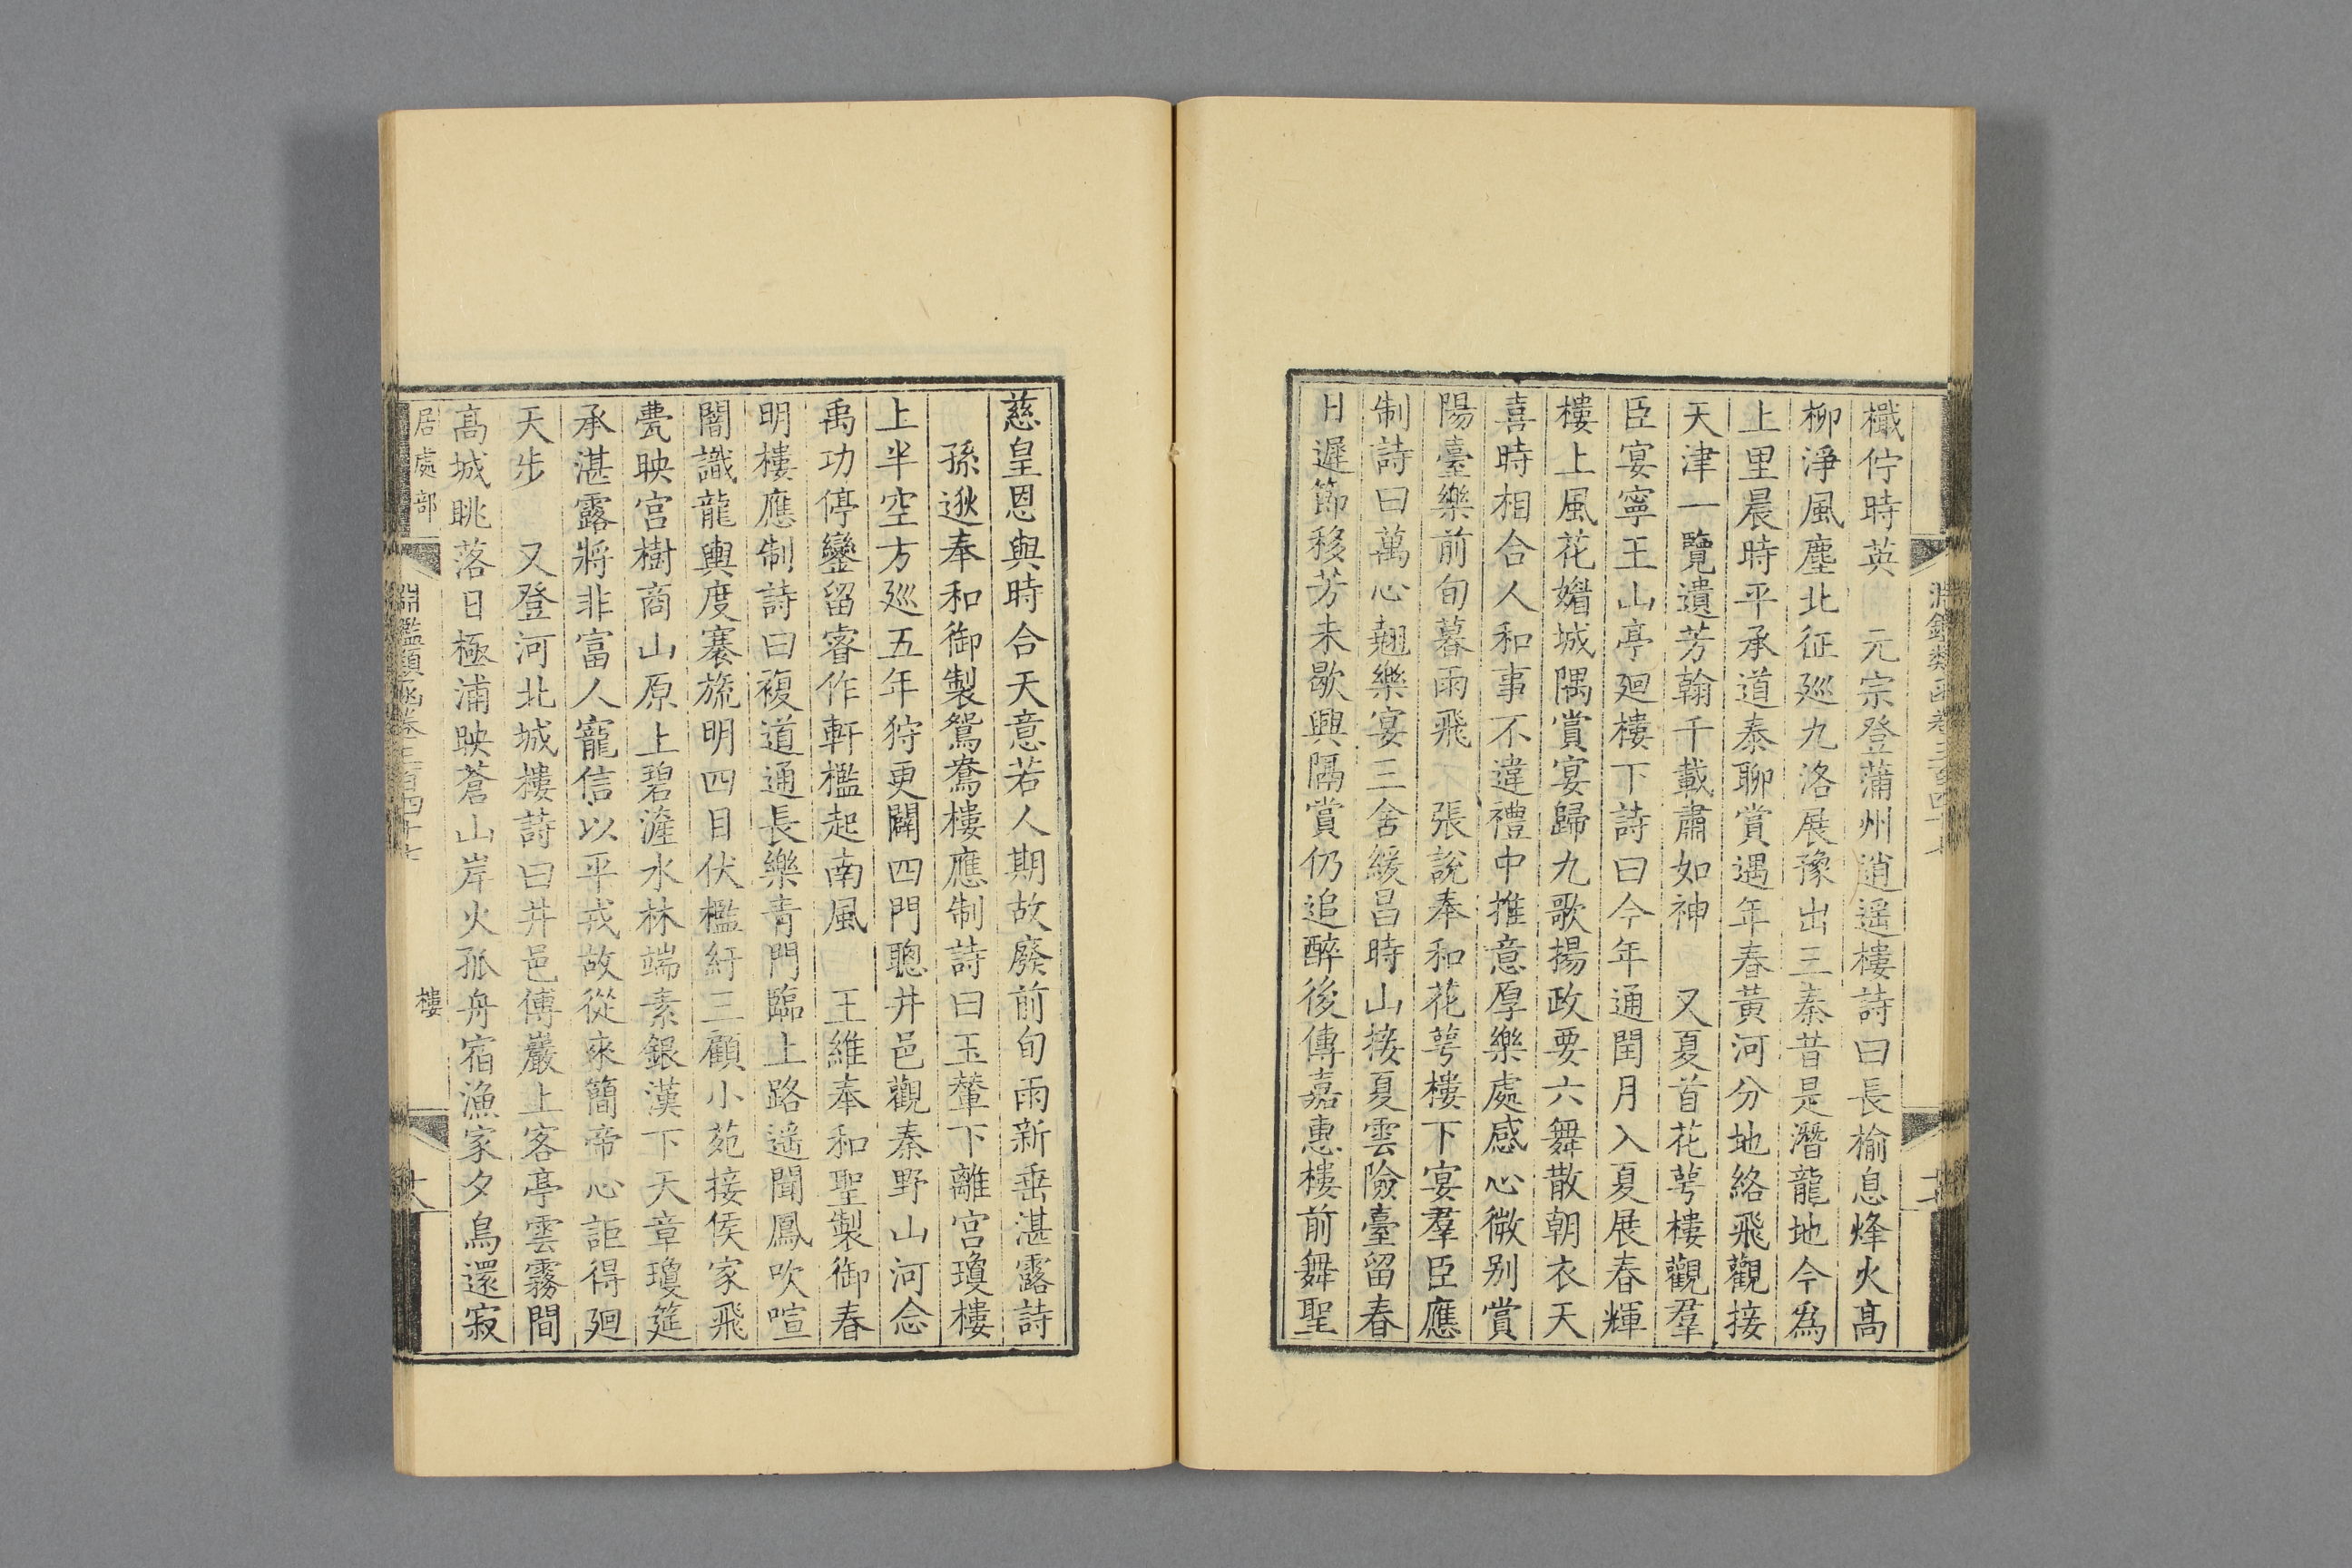 檻佇時英　元宗登蒲州逍遥樓詩曰長榆息烽火高
柳淨風塵北征廵九洛展豫出三秦昔是潛龍地今爲
上里晨時平承道泰聊賞遇年春黃河分地絡飛觀接
天津一覽遺芳翰千載肅如神　又夏首花萼樓觀羣
臣宴寧王山亭廻樓下詩曰今年通閏月入夏展春輝
樓上風花媚城隅賞宴歸九歌揚政要六舞散朝衣天
喜時相合人和事不違禮中推意厚樂處感心微别賞
陽臺樂前旬暮雨飛　張說奉和花萼樓下宴羣臣應
制詩曰萬心翹樂宴三舍緩昌時山接夏雲險臺留春
日遲節移芳未歇興隔賞仍追醉後傳嘉惠樓前舞聖
慈皇恩與時合天意若人期故發前旬雨新垂湛露詩
孫逖奉和御製鴛鴦樓應制詩曰玉輦下離宫瓊樓
上半空方廵五年狩更闢四門聰井邑觀秦野山河念
禹功停鑾留睿作軒檻起南風　王維奉和聖製御春
明樓應制詩曰複道通長樂青門臨上路遥聞鳳吹喧
闇識龍輿度褰旒明四目伏檻紆三顧小苑接侯家飛
甍映宫樹商山原上碧滻水林端素銀漢下天章瓊筵
承湛露將非富人寵信以平戎故從來簡帝心詎得廻
天步　又登河北城樓詩曰井邑傅巖上客亭雲霧間
高城眺落日極浦映蒼山岸火孤舟宿漁家夕鳥還寂
居處部　淵鑑類函卷三百四十七　樓　十八